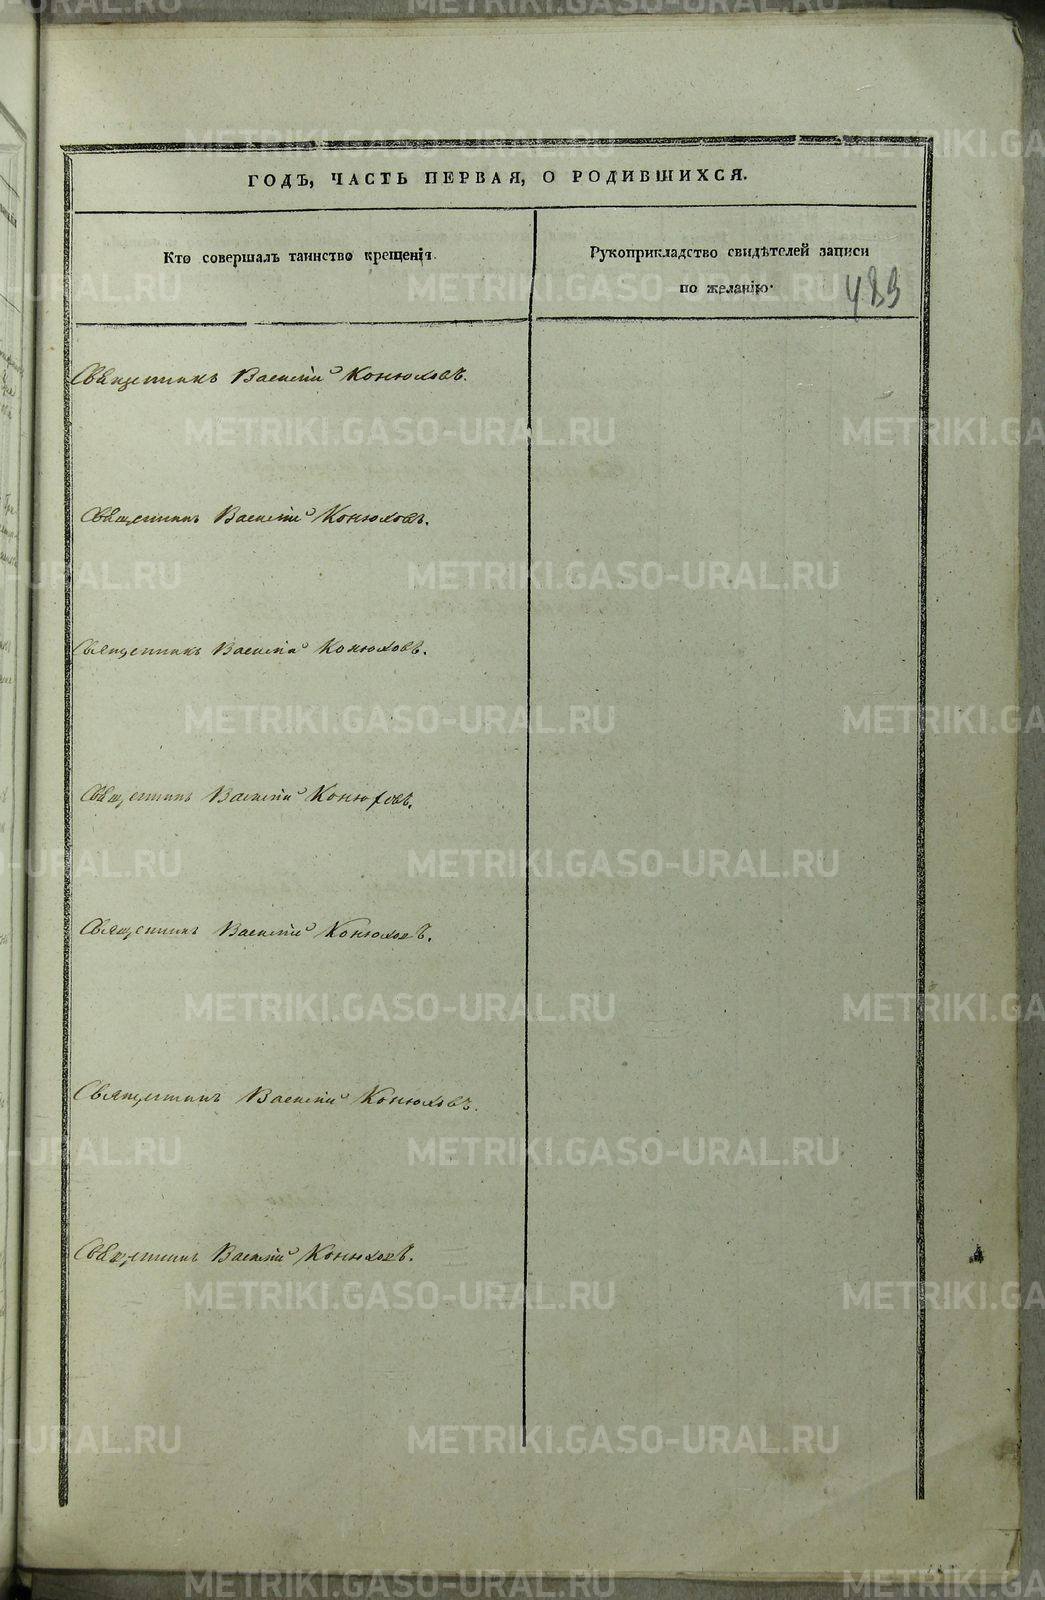 ГОДЪ, ЧАСТЬ ПЕРВАЯ, О РОДИВШИХСЯ.
Кто совершалъ таинство крещенія.
Рукоприкладство свидѣтелей записи
по желанію.
489
Священникъ Василій Конюховъ.
Священникъ Василій Конюховъ.
Священникъ Василій Конюховъ.
Священникъ Василій Конюховъ.
Священникъ Василій Конюховъ.
Священникъ Василій Конюховъ.
Священникъ Василій Конюховъ.
METRIKI.GASO-URAL.RU